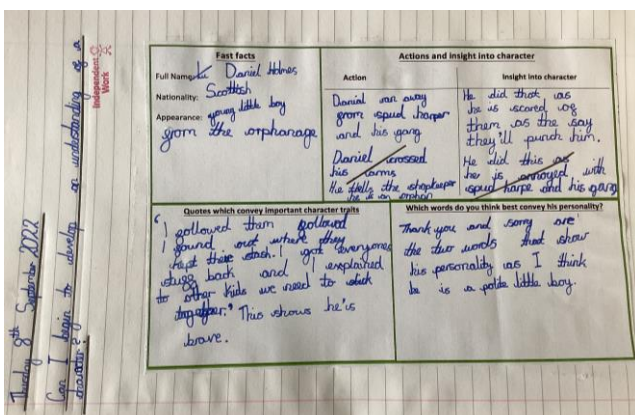 Thursday 8th September 2022
Can I begin to develop an understanding of a
character?
Independent
Work
Fast facts
Full Name: Daniel Holmes
Nationality: Scottish
Appearance: young little boy
from the orphanage
Actions and insight into character
Action
Danial ran away
from spud harper
and his gang
Daniel crossed
his arms
He tells the shopkeeper
he is an orphan
Insight into character
He did that as
he is scared of
them as the say
they'll punch him.
He did this as
he is annoyed with
spud harpe and his gang
Quotes which convey important character traits
"I followed them followed
I found out where they
kept there stash. I got everyones
stuff back and I explained
to other kids we need to stick
together." This shows he's
brave.
Which words do you think best convey his personality?
Thank you and sorry are
the two words that show
his personality as I think
he is a polite little boy.